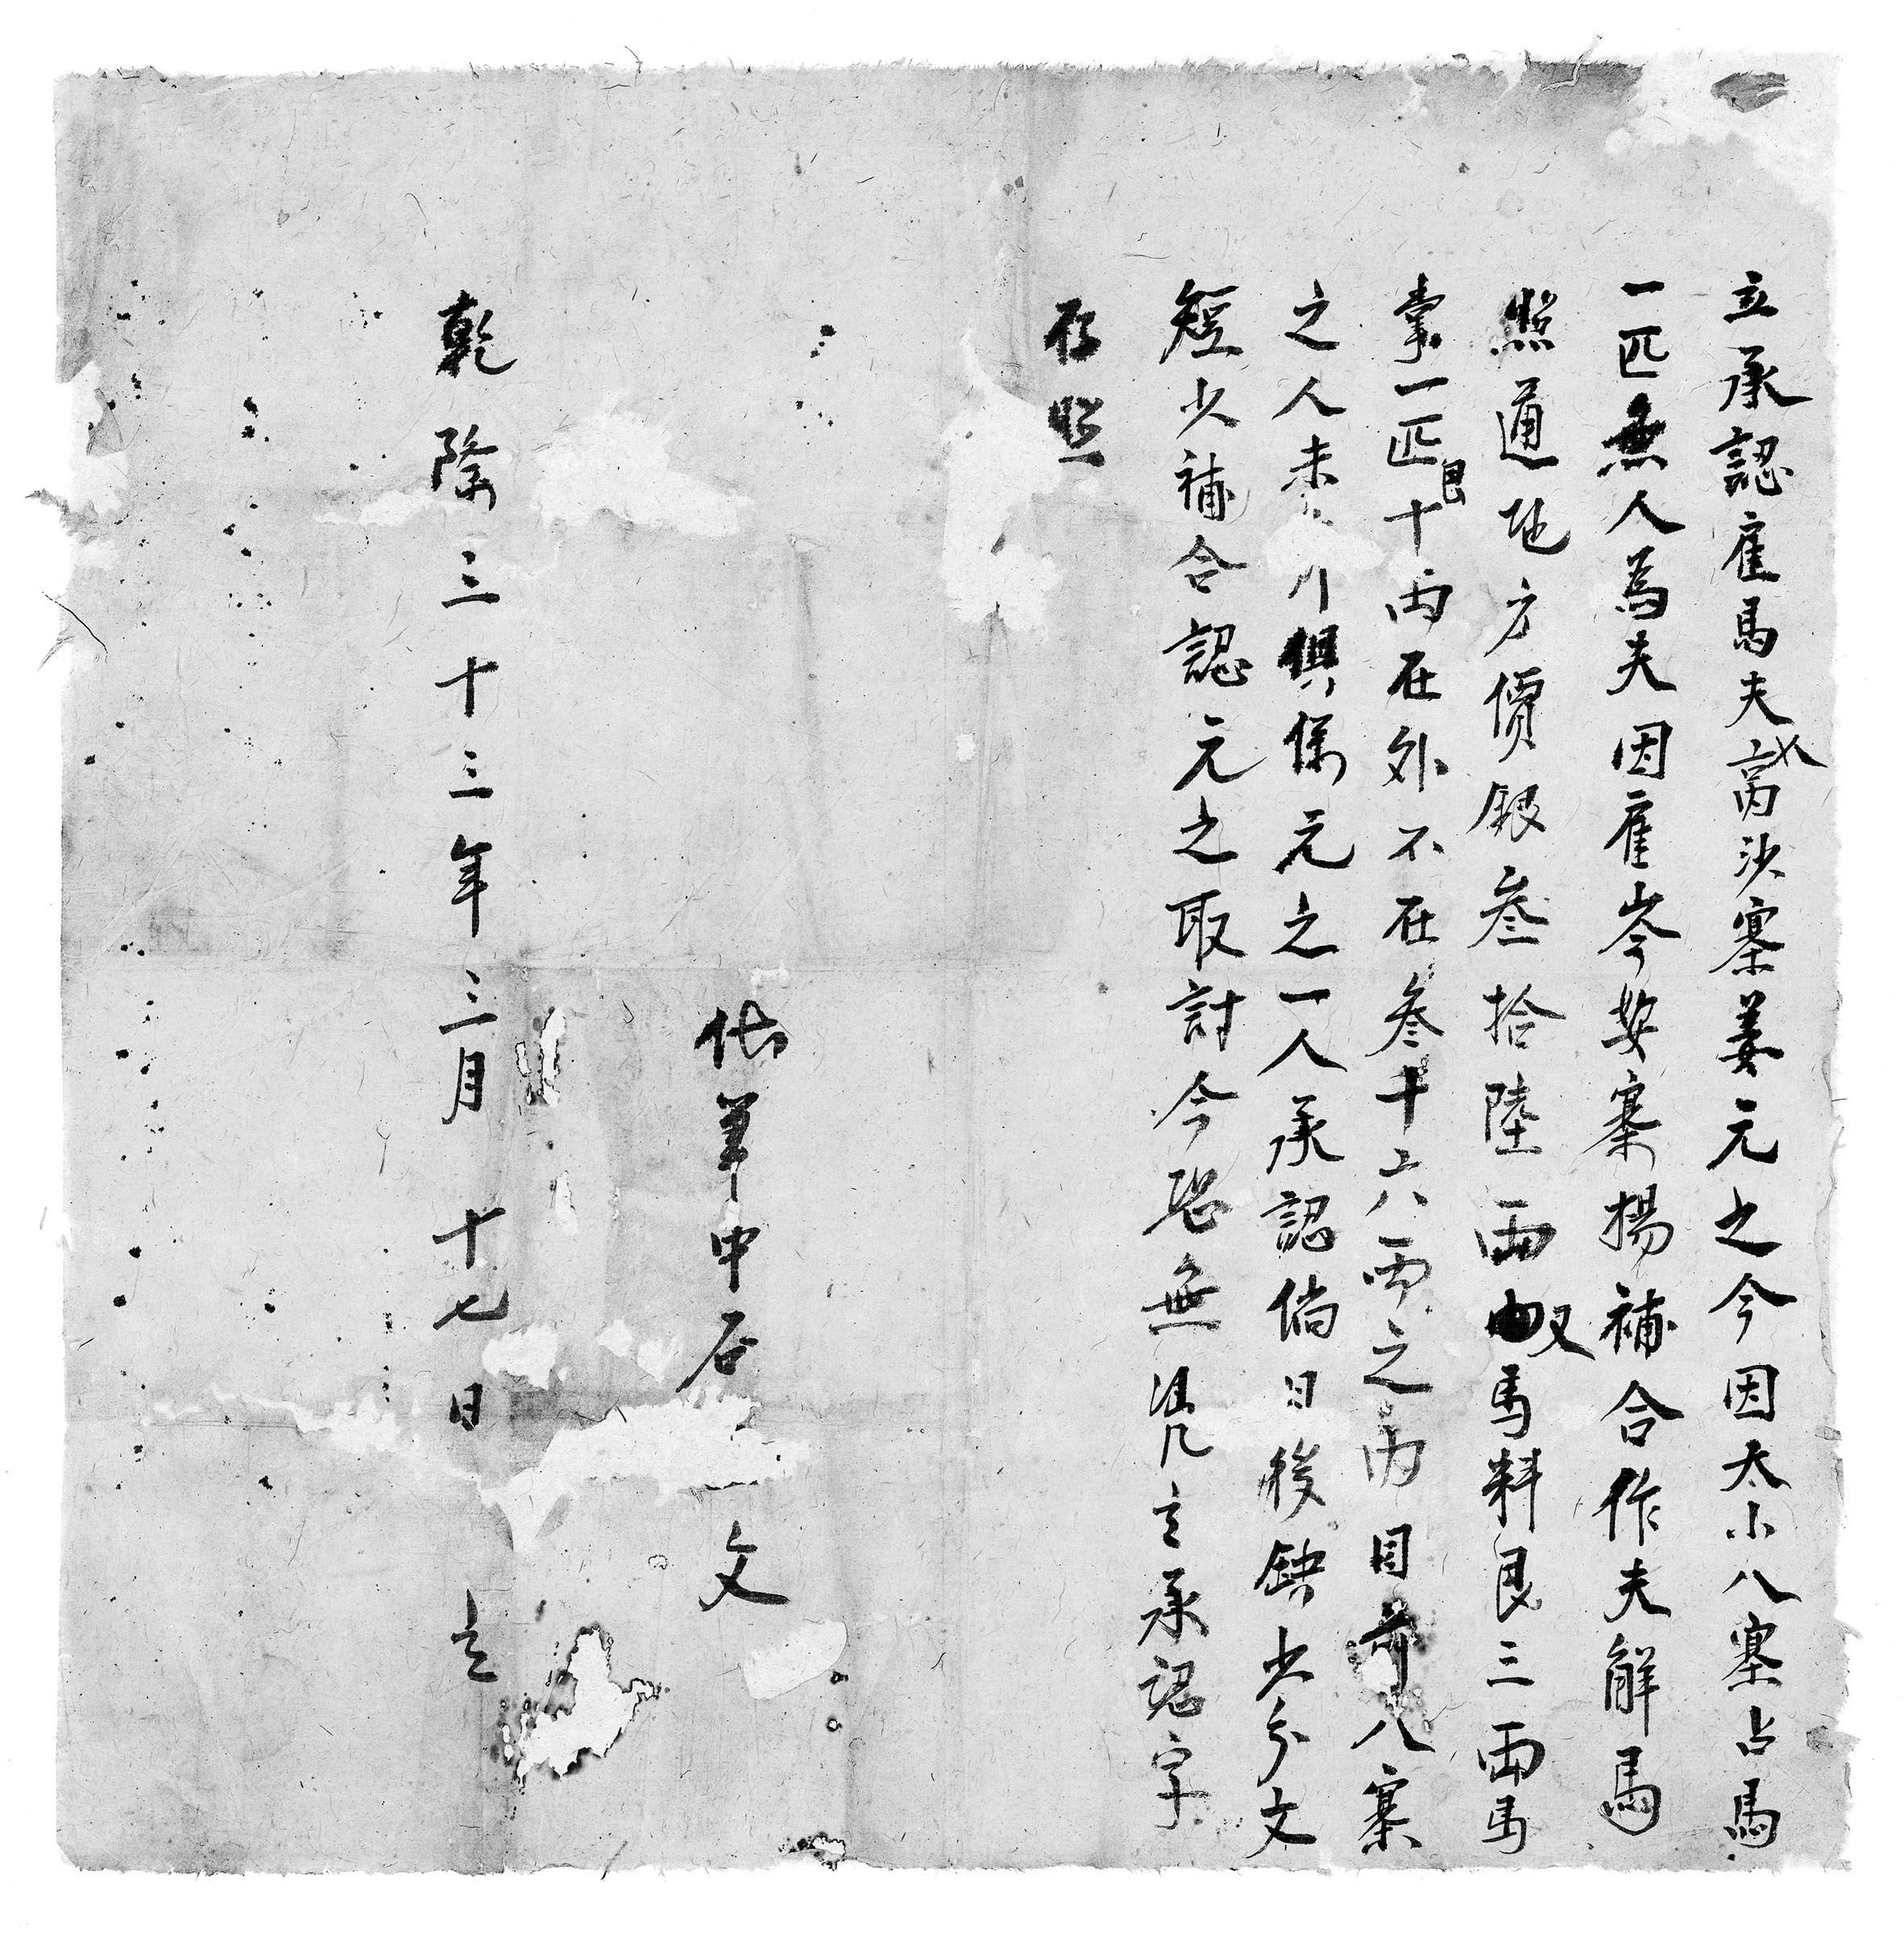 立承認雇馬夫人萵沙寨姜元之今因太小八寨占馬
一匹無人為夫因雇岑婺寨楊補合作夫解馬
照通地方價銀叁拾陸兩又馬料艮三兩馬
掌一匹艮十兩在外不在叁十六兩之內目前八寨
之人俱保元之一人承認倘日後缺少分文
短少補合認元之取討今恐無凭立承認字
存照
代筆中
文
乾隆三十三年三月十七日 立